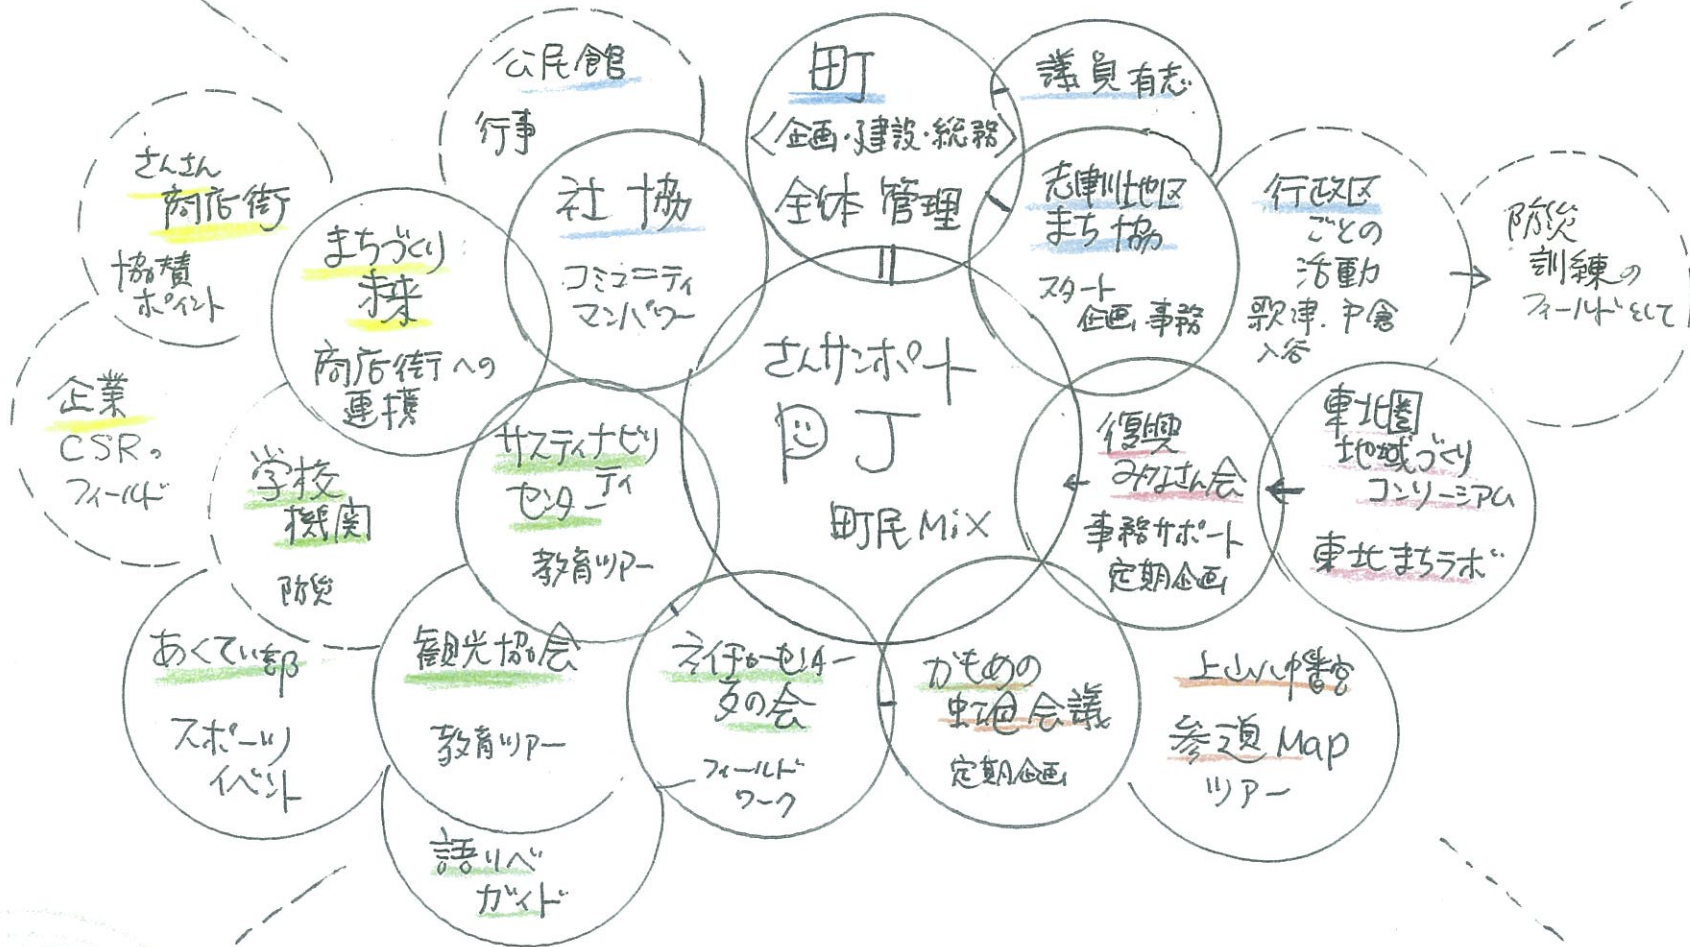 公民館
行事
町
〈企画・建設・総務〉
全体管理
議員有志
さんさん
商店街
協賛
ポイント
まちづくり
未来
商店街への
連携
社協
コミュニティ
マンパワー
志津川地区
まち協
スタート
企画・事務
行政区
ごとの
活動
歌津、戸倉
入谷
防災
訓練の
フィールドとして
企業
CSRの
フィールド
学校
機関
防災
サスティナビリ
ティ
センター
教育ツアー
さんサンポート
PJ
町民MiX
復興
みなさん会
事務サポート
定期企画
東北圏
地域づくり
コンソーシアム
東北まちラボ
あくてぃ部
スポーツ
イベント
観光協会
教育ツアー
ネイチャーセンター
友の会
フィールド
ワーク
かもめの
虹色会議
定期企画
上山八幡宮
参道Map
ツアー
語りべ
ガイド